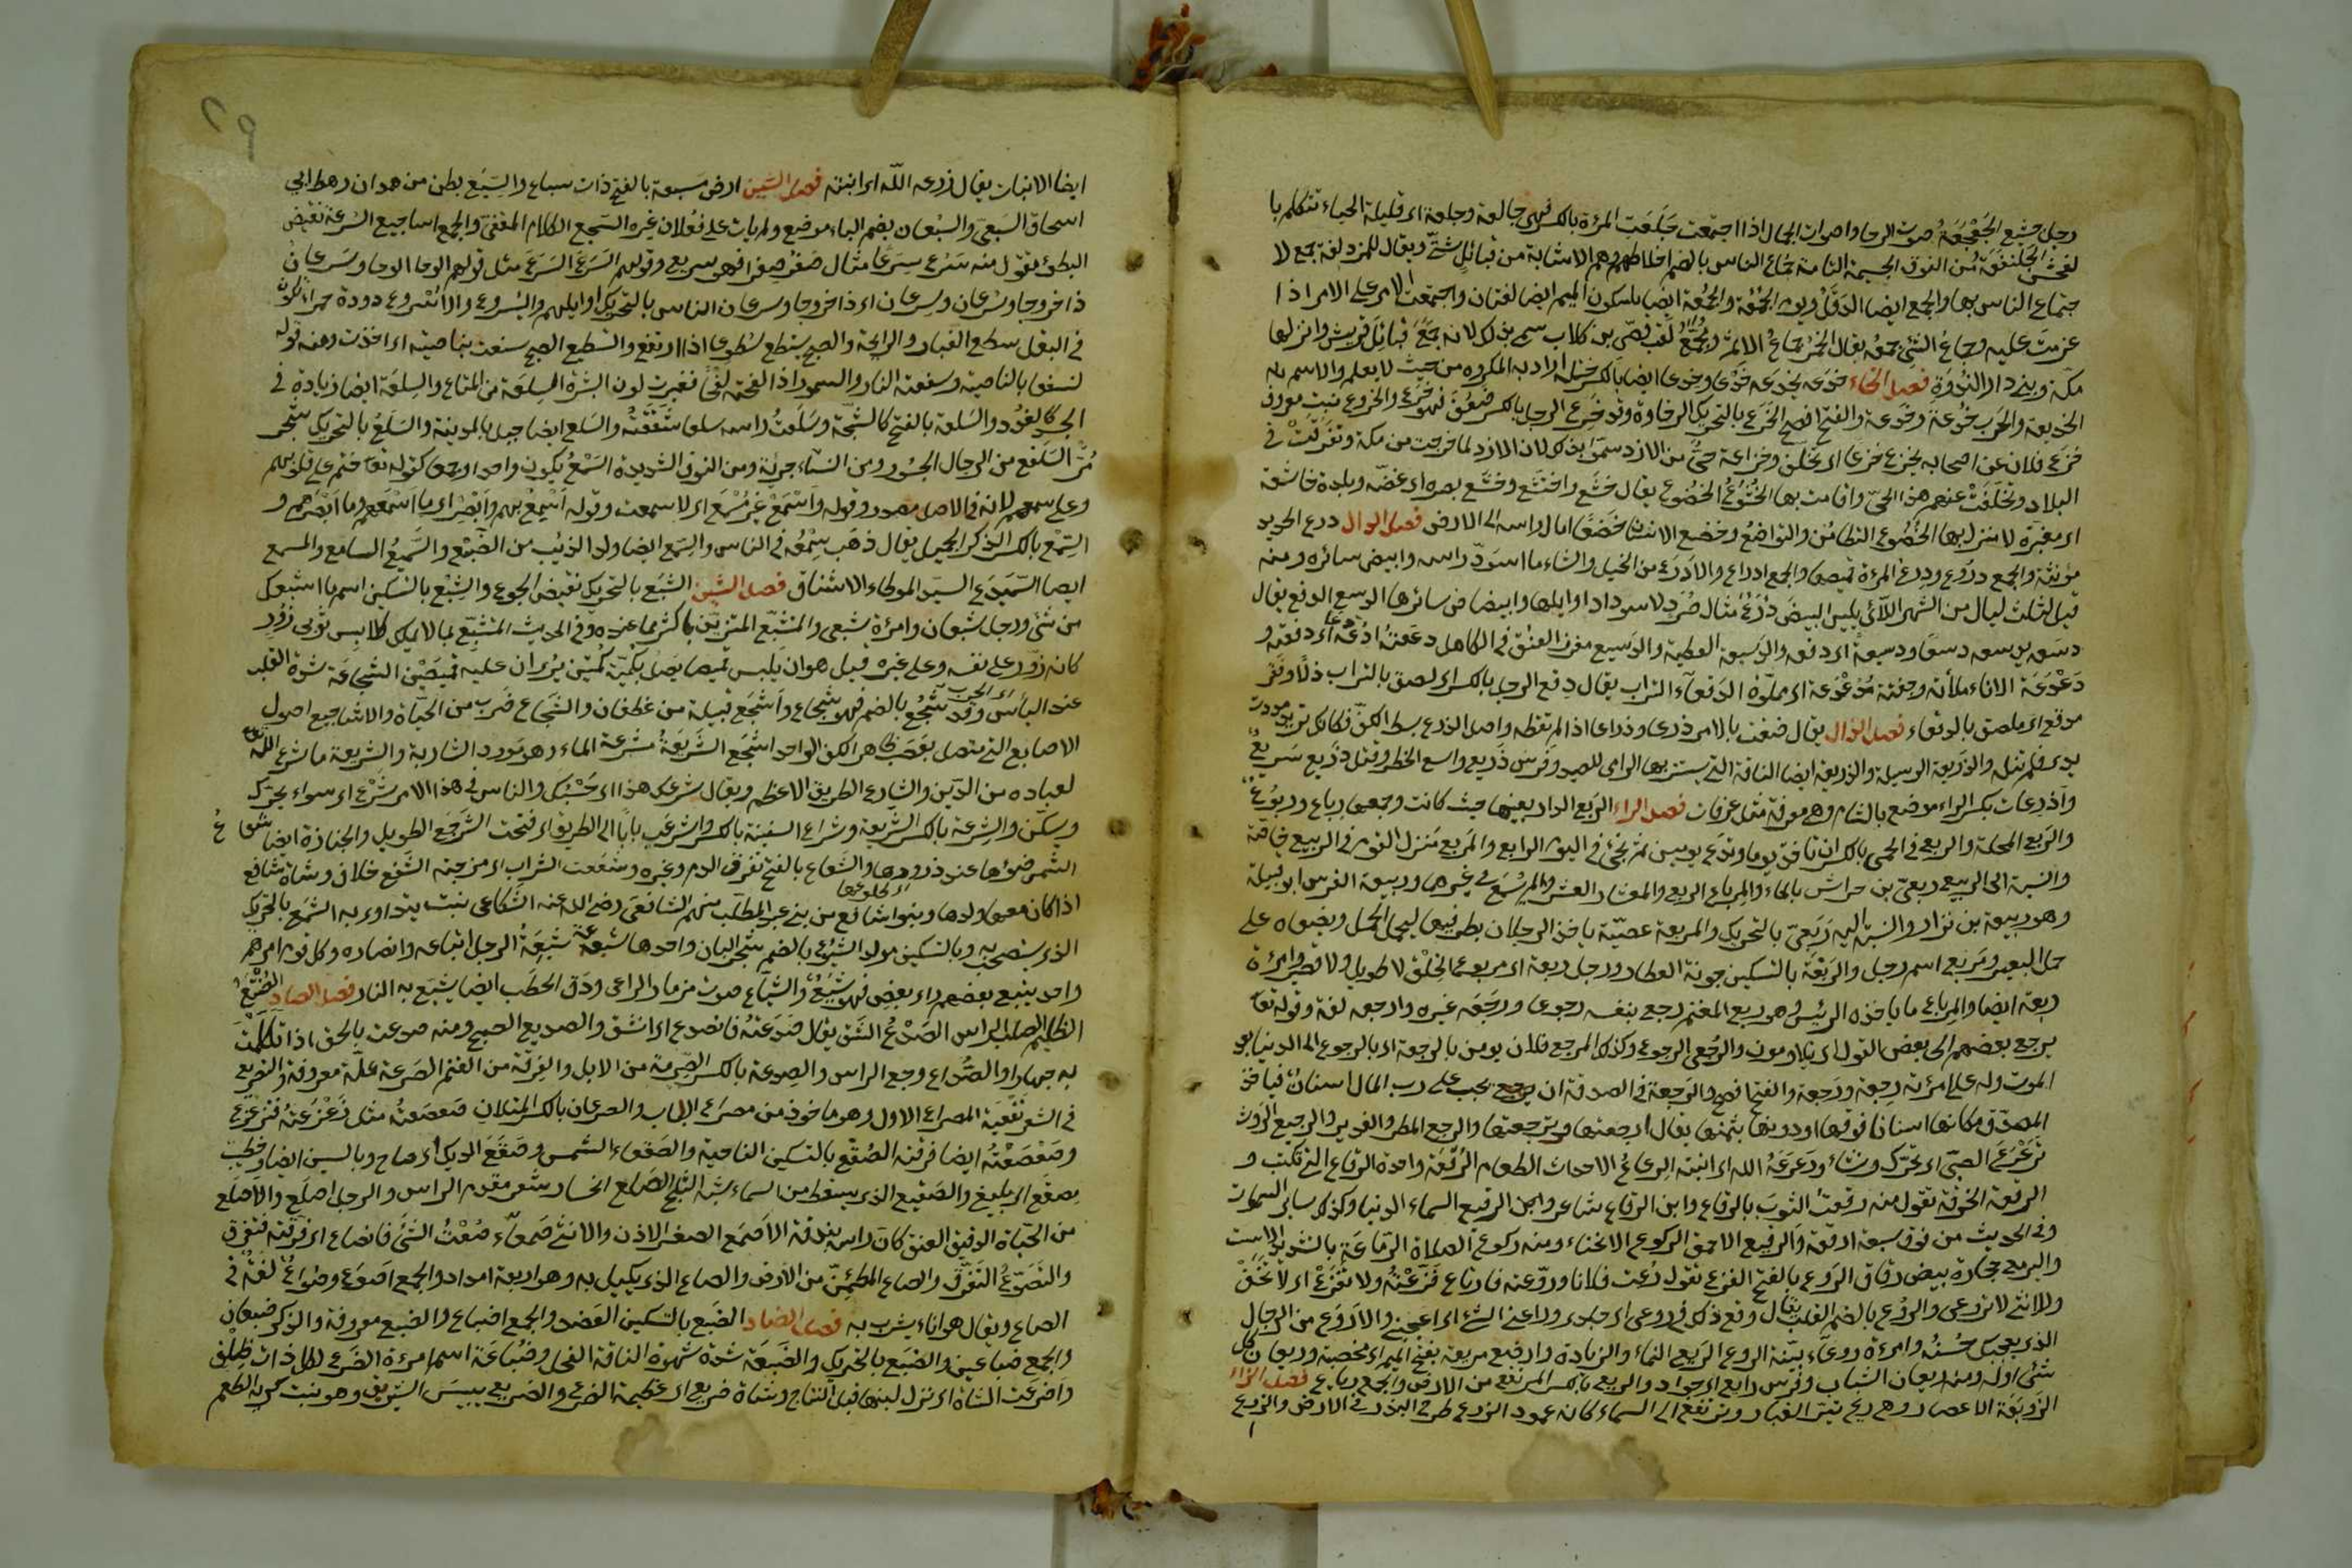 رجل جشع الجَعْجَعَةُ صوت الرحا واصوات الجمال اذا اجتمعت جَلِعَت المرءة بالكسر فهى جالعة وجلعة اى قليلة الحياء تتكلم با
لفحش الجَلَنفَعَة من النوق الجسيمة التامة جُمّاع الناس بالضم اخلاطهم وهم الاشابة من قبائل شتّى ويقال للمزدلفة جمع لا
جتماع الناس بها والجمع ايضا الدقل ويوم الجُمْعَة والجُمُعَة ايضا بسكون الميم ايضا لغتان واجتمعت الامر على الامر اذا
عزمت عليه وجماع الشئ جمعه يقال الخمر جماع الاثم ومُجَمِّعٌ لقب قصىّ بن كلاب سمى بذلك لانه جَمَّعَ قبائل قريش وانزلها
مكّة وبنى دار النَّدْوَةِ فصل الخاء خدَعه يخدعه خَدْعًا وخِدعا ايضا بالكسر ختله واراد به المكروه من حيث لا يعلم والاسم منه
الخديعة والحرب خُدْعَة وخَدعة والفتح افصح الخَرَع بالتحريك الرخاوة وقد خَرِعَ الرجل بالكسر ضَعُفَ فهو خَرِعٌ والخروع نبت معروف
خزع فلان عن اصحابه يخزع خزعا اى تخلّف وخزاعة حىٌّ من الازد سموا بذلك لان الازد لما خرجت من مكة وتفرّقت فى
البلاد وتخلّفت عنهم هذا الحىّ واقامت بها الخُشُوعُ الخضوع يقال خشع واختشع وخشّع بصره اى غضّه وبلدة خاشعة
اى مغبرّة لا منزل بها الخُضُوع التطامُن والتواضعُ وخضع الانسان خَضْعًا امال راسه الى الارض فصل الدال درع الحديد
مؤنثة والجمع دروع ودرع المرءة قميصها والجمع ادراع والادرع من الخيل والشاء ما اسودّ راسه وابيض سائره ومنه
قيل لثلاث ليال من الشهر اللائى يلين البيضَ دُرَعٌ مثال صُرَد لاسوداد اوايلها وابيضاض سائرها الدسع الدفع يقال
دسعه يدسعه دسعًا ودسيعةً اى دفعه والدسيعة العطية والدسيع مغرز العنق فى الكاهل دععته ادعّه دعًّا اى دفعته و
دَعْدَعَة الاناء ملأته وجفنة مُدَعْدَعَة اى مملوّة الدَقعاء التراب يقال دقع الرجل بالكسر اى لصق بالتراب ذلّا وفقر
مدقع اى ملصق بالدقعاء فصل الذال يقال ضقت بالامر ذرعى وذراعا اذا لم تطقه واصل الذرع بسط الكفّ فكانك تريد مددت
يدى فلم تنله والذَريعة الوسيلة والذريعة ايضا الناقة التى يستتر بها الرامى للصيد وفرس ذَريع واسع الخطو وقتل ذَريع سَريع
واذرعات بكسر الراء موضع بالشام وهى معرفة مثل عرفات فصل الراء الرَبع الدار بعينها حيث كانت وجمعها رباع وربوع
والربع المحلة والربع فى الحمى بالكسر ان تاخذ يوما وتدع يومين ثم تجئ فى اليوم الرابع والمربع منزل القوم فى الربيع خاصّة
والنسبة الى الربيع ربعىّ بن حراش بالحاء والمرباع الربع والمعشار العشر ولم يُسْمَع فى غيرهما وربيعة الفرس ابو قبيلة
وهو ربيعة بن نزار والنسبة اليه رَبَعىّ بالتحريك والمربعة عصيّة ياخذ الرجلان بطرفيها ليحمل الحمل ويضعاه على
حمل البعير ومَربع اسم رجل والرَبْعَة بالتسكين جونة العطار ورجل ربعة اى مربوع الخَلْق لا طويل ولا قصير وامرءة
ربعة ايضا والمرباع ما ياخذه الرئيس وهو ربع المغنم رجع بنفسه رجوعا ورَجَعَه غيره وارجعه لغة وقوله تعا
يرجع بعضهم الى بعض القول اى يتلاومون والرُجعى الرجوع وكذلك المرجع فلان يومن بالرجعة اى بالرجوع الى الدنيا بعد
الموت وله على امرءته رِجعة ورَجعة والفتح افصح والرَجعة فى الصدقة ان يجب على رب المال اسنان فياخذ
المصدّق مكانها اسنانا فوقها او دونها بثمنها يقال ارجعتها وترجعتها والرجع المطر والغدير والرجيع الروث
تَرَعْرَعَ الصبىّ اى تحرّك ونشاء ورَعرَعَهُ الله اى انبته الرِعاعُ الاحداث الطغام الرُقعَة واحدة الرقاع التى تكتب و
الرقعة الخرقة تقول منه رقعت الثوبَ بالرقاع وابن الرقاع شاعر وابن الرقيع السماء الدنيا وكذلك سائر السموات
وفى الحديث من فوق سبعة ارقعة والرقيع الاحمق الركوع الانحناء ومنه ركوع الصلاة الرَمّاعَة بالتشديد الاست
واليرمع حجارة بيض رقاق الروع بالفتح الفزع تقول رُعت فلانا وروّعته فارتاع فَزَّعْتُهُ ولا تُرَعْ اى لا تَخَفْ
وللانثى لا تُراعى والرُوع بالضم القلب يقال وقع ذلك فى روعى اى خلدى وراعنى الشئ اى اعجبنى والاروع من الرجال
الذى يعجبك حُسْنُه وامرءة روعاء بيّنة الروع الرَيع النماء والزيادة وارض مريعة بفتح الميم اى مخصبة وريعان كل
شئ اوله ومنه ريعان الشباب وفرس رايع اى جواد والريع بالكسر المرتفع من الارض والجمع رياع فصل الزاء
الزوبَعَة الاعصار وهى ريح تثير الغبار وترتفع الى السماء كانه عمود الزرع طرح البذر فى الارض والزرع
٢٩
ايضا الانبات يقال زرعه اللّه اى انبته فصل السين ارض مَسبعة بالفتح ذات سباع والسَبيع بطن من همدان رهط ابى
اسحاق السَبيعىّ والسَبُعان بضم الباء موضع ولم يات على فعُلان غيره السَجع الكلام المقفىّ والجمع اساجيع السُرعة نقيض
البطؤ تقول منه سَرُع سِرَعا مثال صغُر صِغَرا فهو سريع وقولهم السَرَعَ السَرَعَ مثل قولهم الوحا الوحا وسَرعان
ذا خروجا وسُرعان وسِرعان اى ذا خروجا وسرعان الناس بالتحريك اوايلهم واليُسروع والاُسْروع دودة حمراء تكون
فى البقل سطع الغبار والرائحة والصبح يسطع سُطوعا اذا ارتفع والسَطيع الصبح سفعت بناصيته اى اخذت ومنه قوله
لنسفعا بالناصية وسفعته النار والسموم اذا لفحته لفحًا فغيرت لون البشرة السِلعَة من المتاع والسِلعَة ايضا زيادة فى
الجسد كالغُدد والسَلعة بالفتح كالشجّة وسَلَعتُ راسه سلعا شَقَقْتُه والسَلع ايضا جبل بالمدينة والسَلَعُ بالتحريك شجر
مُرٌّ السَلفع من الرجال الجسُور ومن النساء جريئة ومن النوق الشديدة السَمْعُ يكون واحدا وجمعا كقوله تعا ختم على قلوبهم
وعلى سمعهم لانه فى الاصل مصدر وقوله واسْمَعْ غَيْرَ مُسْمَعٍ اى لا سمعت وقوله اَسْمِعْ بهم وابْصِرْ اى ما اَسْمَعَهم وما اَبْصَرَهم و
السِمْع بالكسر الذكر الجميل يقال ذهب سِمْعُه فى الناس والسِمع ايضا ولد الذئب من الضَبُع والسَّميعُ السامع والمسمع
ايضا السَّمَيدَع السيد الموطاء الاكناف فصل الشين الشبَع بالتحريك نقيض الجوع والشِبْع بالتسكين اسم ما اشبعك
من شئ ورجل شبعان وامرءة شبعى والمتشبّع المتزيّن باكثر مما عنده وفى الحديث المتشبّع بما لا يملك كلابِس ثوبَى زُورٍ
كانه زوّر على نفسه وعلى غيره قيل هو ان يَلبس قميصا يصل بكُمّيه كمّين يُرى ان عليه قميصَيْن الشجاعَة شدة القلب
عند البأس اى الحرب وقد شَجُعَ بالضم فهو شجاع واَشجَع قبيلة من غطفان والشجاع ضَرب من الحيّاة والاشاجيع اصول
الاصابع التى تتصل بعَصَب ظاهر الكف الواحد اشجَع الشَريعَةُ مشرعة الماء وهو مَورد الشاربة والشريعة ما شرع اللّه
لعباده من الدّين والشارع الطريق الاعظم ويقال شرعُك هذا اى حَسْبُك والناس فى هذا الامر شَرَعٌ اى سواء يحرّك
ويسكّن والشِرعة بالكسر الشريعة وشراع السفينة بالكسر واشرعْتُ بابًا الى الطريق اى فتحت الشَرجَع الطويل والجنازة ايضا شعاع
الشمس ضوؤها عند ذرورها اى طلوعها والشَعاع بالفتح تفرّق الدم وغيره وشعشعت الشراب اى مزجته الشَفع خلاف وشاة شافع
اذا كان معها ولدها وبنو شافع من بنى عبد المطلب منهم الشافعى رضى الله عنه الشكاعى نبت يتداوى به الشمَع بالتحريك
الذى يستصبح به وبالتسكين مولد الشُوع بالضم شجر البان واحدها شوعة شيعَةُ الرجل اتباعه وانصاره وكل قوم امرهم
واحد يتبع بعضهم راى بعض فهو شِيَعٌ والشِياع صوت مزمار الراعى ودَق الحطَب ايضا يشيّع به النار فصل الصاد الصُنْتُعُ
الظليم الصلب الراس الصَدْعُ الشَق يقال صَدَعتُه فانصدع اى انشق والصديع الصبح ومنه صدعت بالحق اذا تكلمت
به جهارا والصُداع وجع الراس والصِدعة بالكسر الصرمة من الابل والفِرقة من الغنم الصَرعة علّة معروفة والتصريع
فى الشعر تقفيَة المصراع الاول وهو ماخوذ من مصراع الباب والصرعان بالكسر المثلان صَعصَعتُه مثل زَعْزَعتُه فتزعزع
وصَعْصَعْتُه ايضا فرقته الصُقع بالتسكين الناحية والصَقعاء الشمس وصَقَعَ الديك اى صاح وبالسين ايضا وخطيب
مِصقَع اى بليغ والصَقيع الذى يسقط من السماء يشبه الثلج الصَلَع انحسار شعر مقدم الراس والرجل اصلَع والاصَيلع
من الحَيّاة الدقيق العنق كان راسه بندقة الاَصمَع الصغير الاذن والانثى صَمعاء صُعْتُ الشئَ فانصاع اى فرّقته فتفرّق
والتَصَوّعُ التفرّق والصاع المطمئِنّ من الارض والصاع الذى يكيل به وهو اربعة امداد والجمع اَصوُع وصُواعٌ لغة فى
الصاع ويقال هو اناء يشرب به فصل الضاد الضَبع بالتسكين العَضد والجمع اضباع والضبع معروفة والذكر ضبعان
والجمع ضباعين والضَبَع بالتحريك والضَبعَة شدة شهوة الناقة الفحل وضُباعَة اسم امرءة الضَرع لكل ذات ظِلْفٍ
واضرعت الشاة اى نزل لبنها قبل النتاج وشاة ضريع اى عظيمة الضرع والضريع يبيسَ الشبرق وهو نبت كريه الطعم